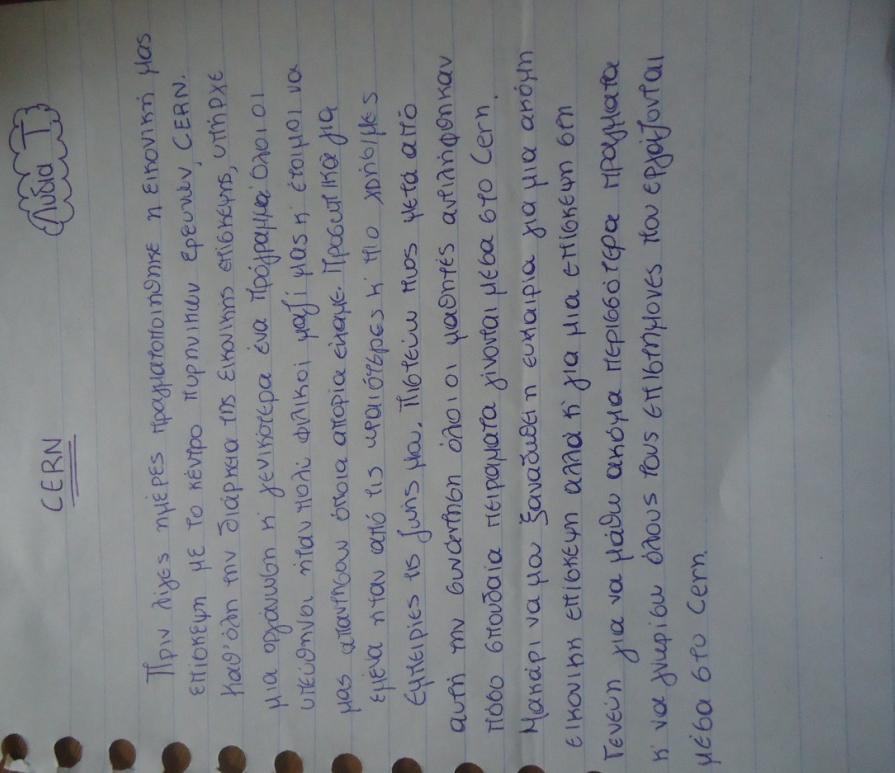 Λυδια Τ.
CERN
Πριν λίγες ημέρες πραγματοποιήθηκε η εικονική μας
επίσκεψη με το κέντρο πυρηνικών ερευνών, CERN.
Καθ'όλη την διάρκεια της εικονικης επίσκεψης, υπήρχε
μια οργάνωση κ' γενικότερα ένα πρόγραμμα. Όλοι οι
υπεύθηνοι ήταν πολύ φιλικοί μαζί μας κ' έτοιμοι να
μας απαντήσουν όποια απορία είχαμε. Προσωπικά για
εμένα ήταν από τις ωραιότερες κ' πιο χρήσιμες
εμπειρίες της ζωής μου. Πιστεύω πως μετά από
αυτή την συνάντηση όλοι οι μαθητές αντιλήφθηκαν
πόσο σπουδαία πειράματα γίνονται μέσα στο Cern.
Μακάρι να μου ξαναδωθεί η ευκαιρία για μια ακόμη
εικονική επίσκεψη αλλά κ' για μια επίσκεψη στη
Γενεύη για να μάθω ακόμα περισσότερα πράγματα
κ' να γνωρίσω όλους τους επιστήμονες που εργάζονται
μέσα στο Cern.